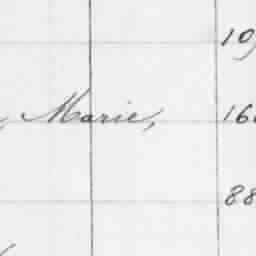 10
Marie, 16
88